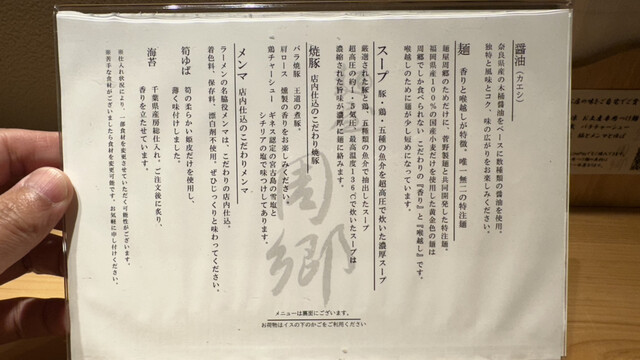 醤油（カエシ）
奈良県産の木桶醤油をベースに数種類の醤油を使用。
独特と風味とコク、味の広がりをお楽しみください。
麺 香りと喉越しが特徴。唯一無二の特注麺
麺屋周郷のためだけに、菅野製麺と共同開発した特注麺。
福岡県産100％の国産小麦だけを使用した黄金色の麺は
周郷でしか食べられない、こだわりの『香り』と『喉越し』です。
喉越しのために麺が少し短めになっています。
スープ 豚・鶏・五種の魚介を超高圧で炊いた濃厚スープ
厳選された豚と鶏、五種類の魚介で抽出したスープ
超高圧の約1.5気圧、最高温度136℃で炊いたスープは
濃縮された旨味が濃厚に麺に絡みます。
焼豚 店内仕込のこだわり焼豚
バラ焼豚 王道の煮豚。
肩ロース 燻製の香りをお楽しみください。
鶏チャーシュー ギネス認定の宮古島の雪塩と
シチリアの塩で味つけしてあります。
メンマ 店内仕込のこだわりメンマ
ラーメンの名脇役メンマは、こだわりの店内仕込。
着色料、保存料、漂白剤不使用。ぜひじっくりと味わってください。
筍ゆば 筍の柔らかい姫皮だけを使用し、
薄く味付けしました。
海苔 千葉県産房総仕入れ、ご注文後に炙り、
香りを立たせています。
※仕入れ状況により、一部食材を変更させていただく可能性がございます。
※苦手な食材がございましたら食材を変更可能です。お気軽に申し付けください。
周郷
メニューは裏面にございます。
お荷物はイスの下のかごをご利用ください